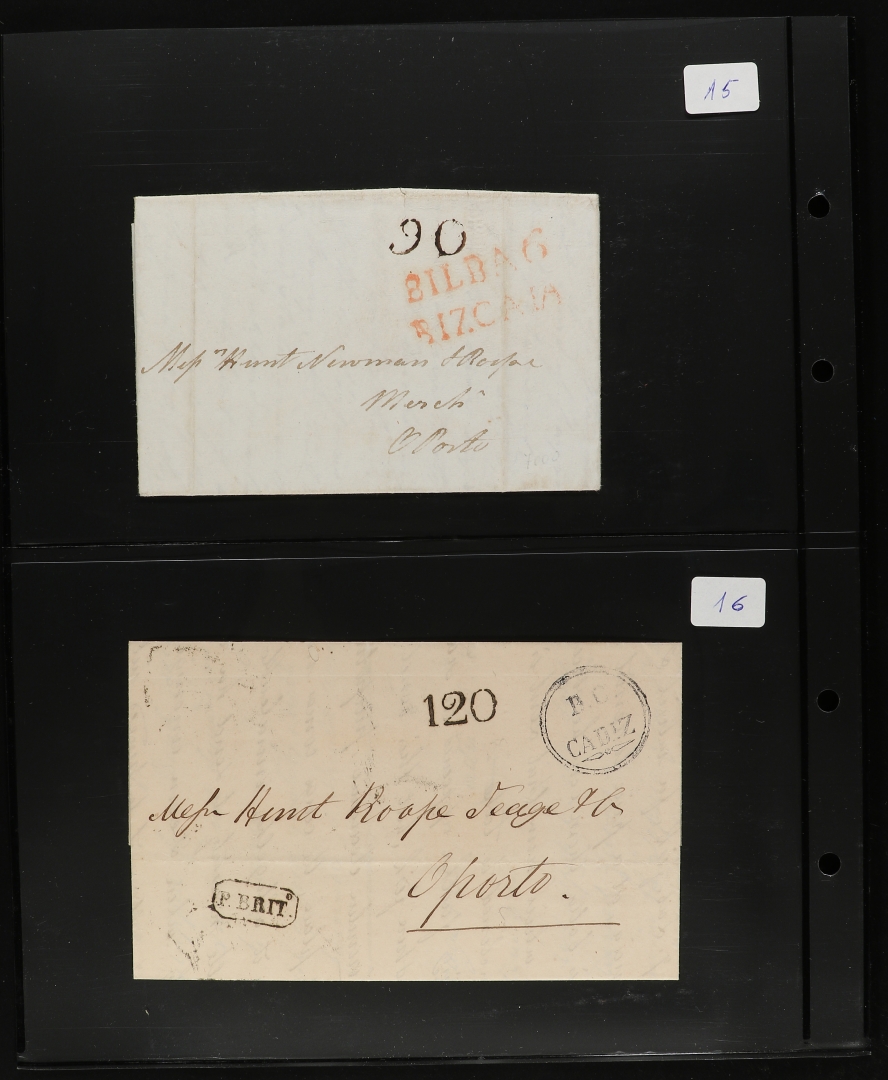 15
90
BILBAO
BIZCAIA
Messrs Hunt Newman & Roope
Merchts
O Porto
16
120
B. C.
CADIZ
Messrs Hunt Roope Teage & Co
Oporto.
P. BRITº.